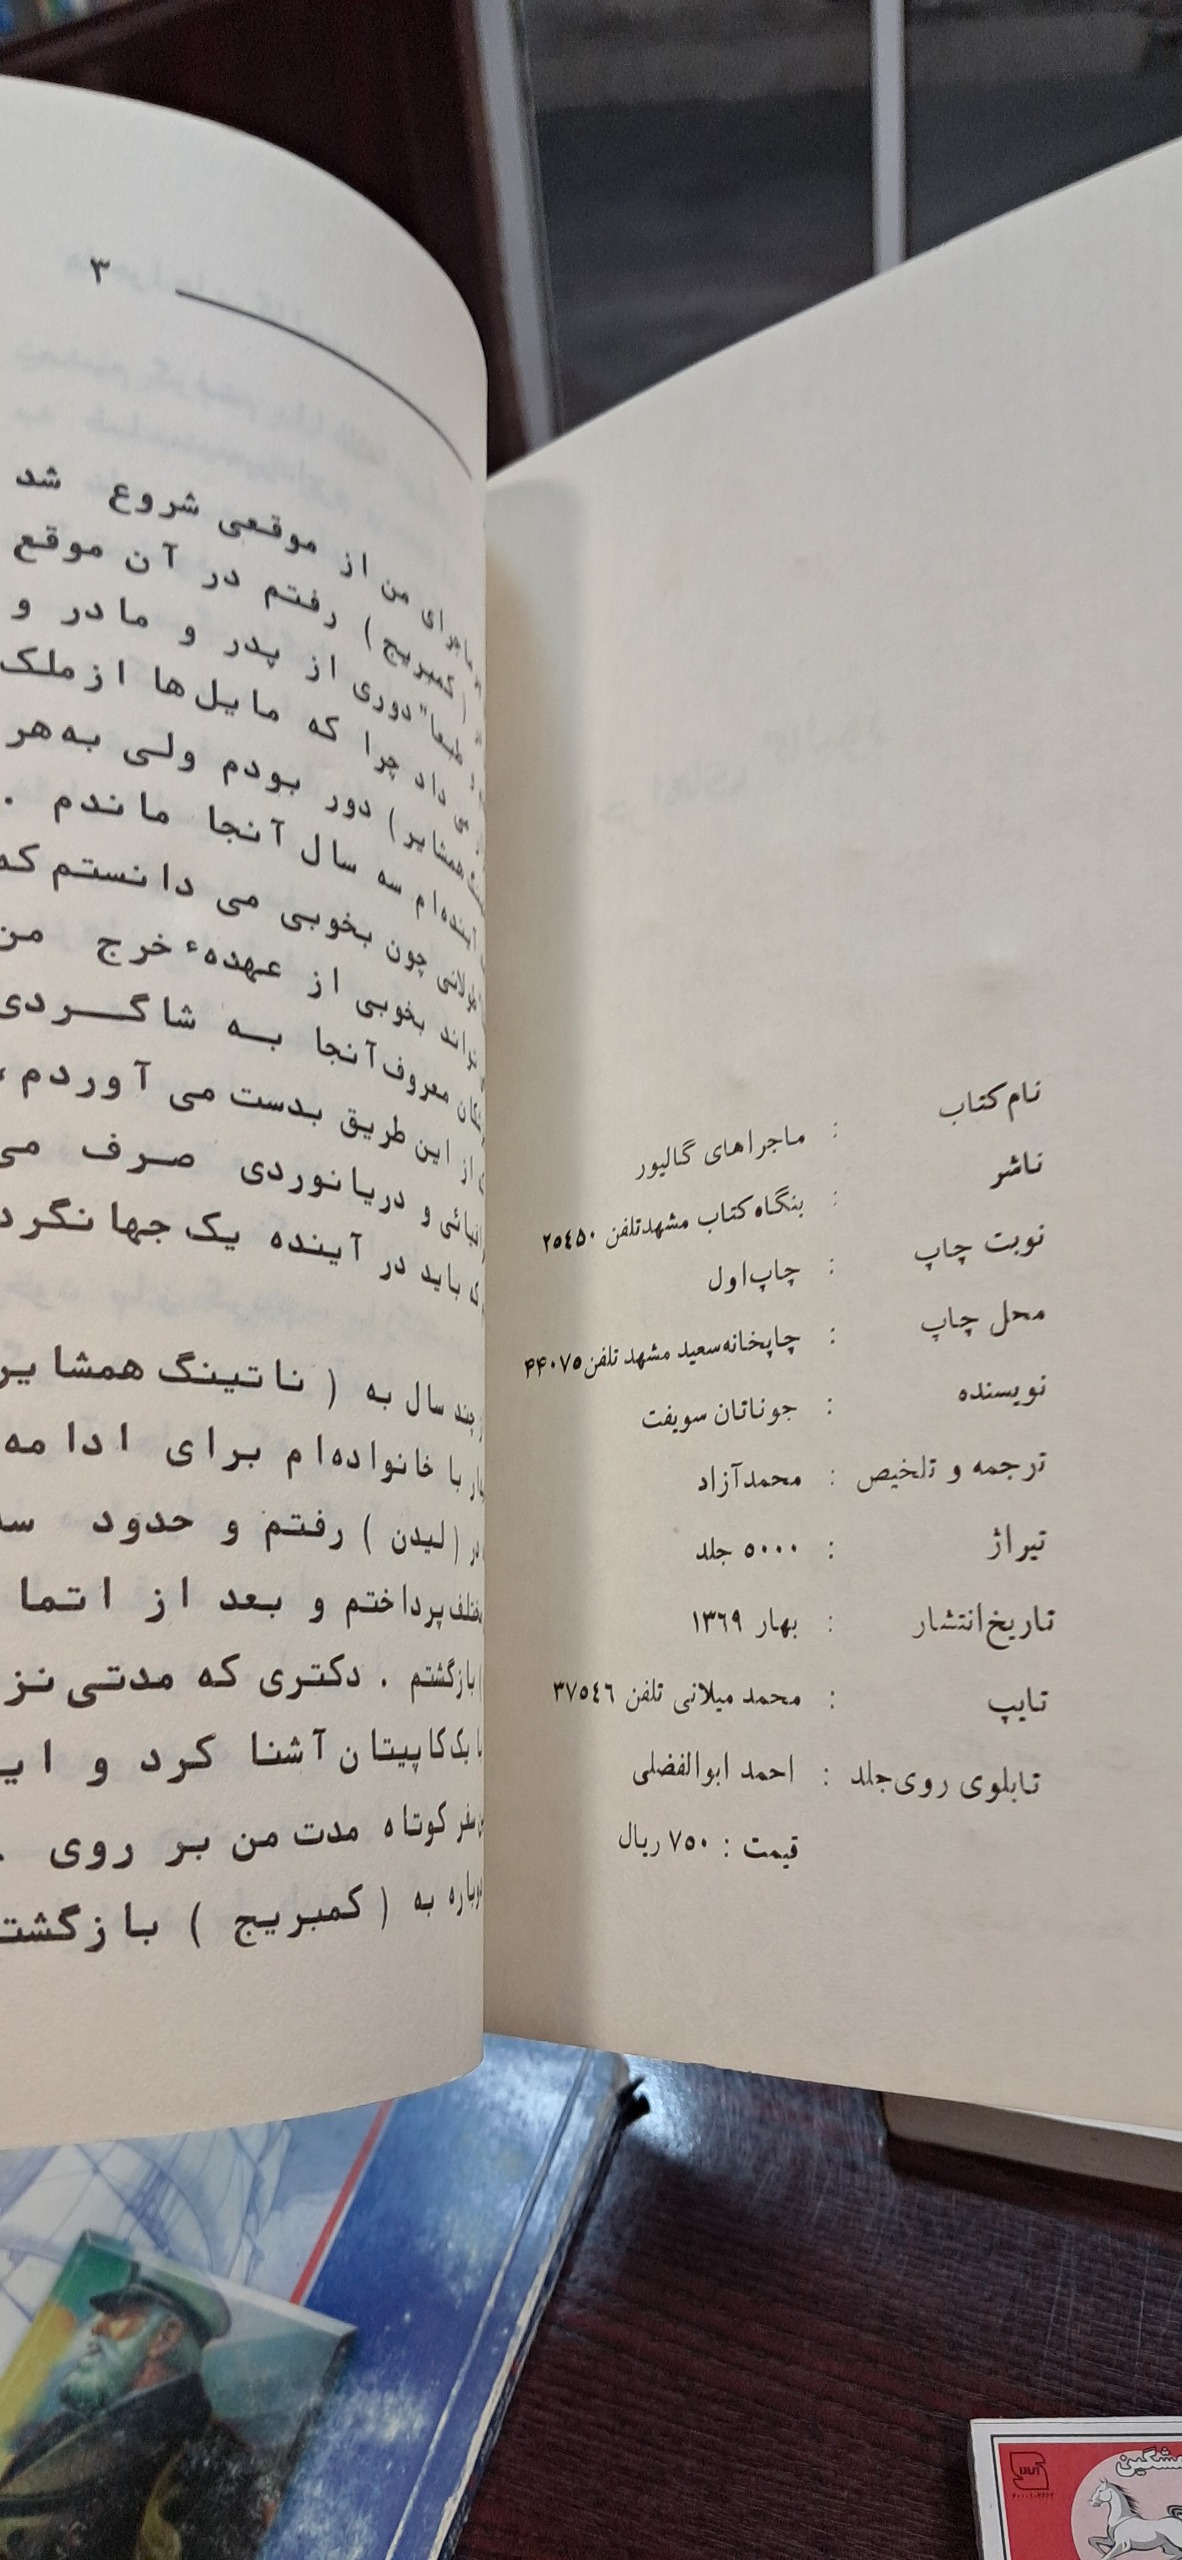 نام کتاب : ماجراهای گالیور
ناشر : بنگاه کتاب مشهد تلفن ۲۵٤۵۰
نوبت چاپ : چاپ اول
محل چاپ : چاپخانه سعید مشهد تلفن ۴۴۰۷۵
نویسنده : جوناتان سویفت
ترجمه و تلخیص : محمد آزاد
تیراژ : ۵۰۰۰ جلد
تاریخ انتشار : بهار ۱۳٦۹
تایپ : محمد میلانی تلفن ۳۷۵٤٦
تابلوی روی جلد : احمد ابوالفضلی
قیمت : ۷۵۰ ریال
۳
ماجرای من از موقعی شروع شد
( کمبریج ) رفتم در آن موقع
طبعا" دوری از پدر و مادر و
داد چرا که مایل‌ها از ملک
همشایر ) دور بودم ولی به هر
سه سال آنجا ماندم .
طولانی چون بخوبی می دانستم که
تواند بخوبی از عهدهٔ خرج من
معروف آنجا بـه شاگـردی
از این طریق بدست می آوردم ،
و دریانوردی صرف می
باید در آینده یک جهانگرد
چند سال به ( ناتینگ همشایر
با خانواده‌ام برای ادامه
در ( لیدن ) رفتم و حدود
مختلف پرداختم و بعد از اتما
بازگشتم . دکتری که مدتی نز
با یک کاپیتان آشنا کرد و ایـ
سفر کوتاه مدت من بر روی
دوباره به ( کمبریج ) بازگشت
مشگین